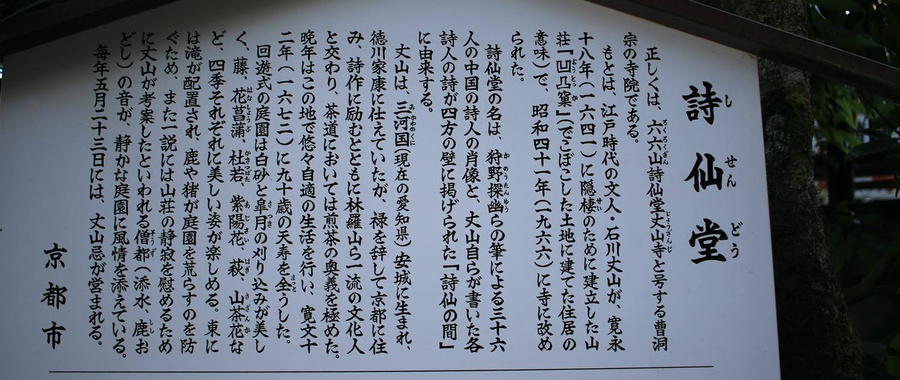 詩仙堂
しせんどう
正しくは、六六山詩仙堂丈山寺と号する曹洞
宗の寺院である。
もとは、江戸時代の文人・石川丈山が、寛永
十八年(一六四一)に隠棲のために建立した山
荘『凹凸窠』(でこぼこした土地に建てた住居の
意味)で、昭和四十一年(一九六六)に寺に改め
られた。
詩仙堂の名は、狩野探幽らの筆による三十六
人の中国の詩人の肖像と、丈山自らが書いた各
詩人の詩が四方の壁に掲げられた「詩仙の間」
に由来する。
丈山は、三河国(現在の愛知県)安城に生まれ、
徳川家康に仕えていたが、禄を辞して京都に住
み、詩作に励むとともに林羅山ら一流の文化人
と交わり、茶道においては煎茶の奥義を極めた。
晩年はこの地で悠々自適の生活を行い、寛文十
二年(一六七二)に九十歳の天寿を全うした。
回遊式の庭園は白砂と皐月の刈り込みが美し
く、藤、花菖蒲、杜若、紫陽花、萩、山茶花な
ど、四季それぞれに美しい姿が楽しめる。東に
は滝が配置され、鹿や猪が庭園を荒らすのを防
ぐため、また一説には山荘の静寂を慰めるため
に丈山が考案したといわれる僧都(添水、鹿お
どし)の音が、静かな庭園に風情を添えている。
毎年五月二十三日には、丈山忌が営まれる。
京都市